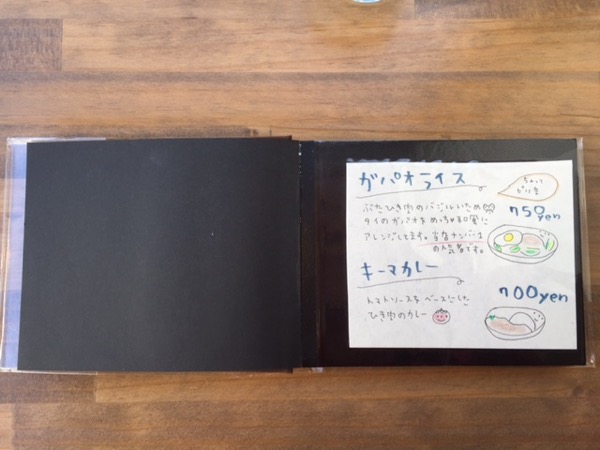 ガパオライス
ちょっと
ピリ辛
750yen
ぶたひき肉のバジルいため
タイのガパオをめっちゃ和風に
アレンジしてます。当店ナンバー1
の人気者です。
キーマカレー
700yen
トマトソースをベースにした
ひき肉のカレー